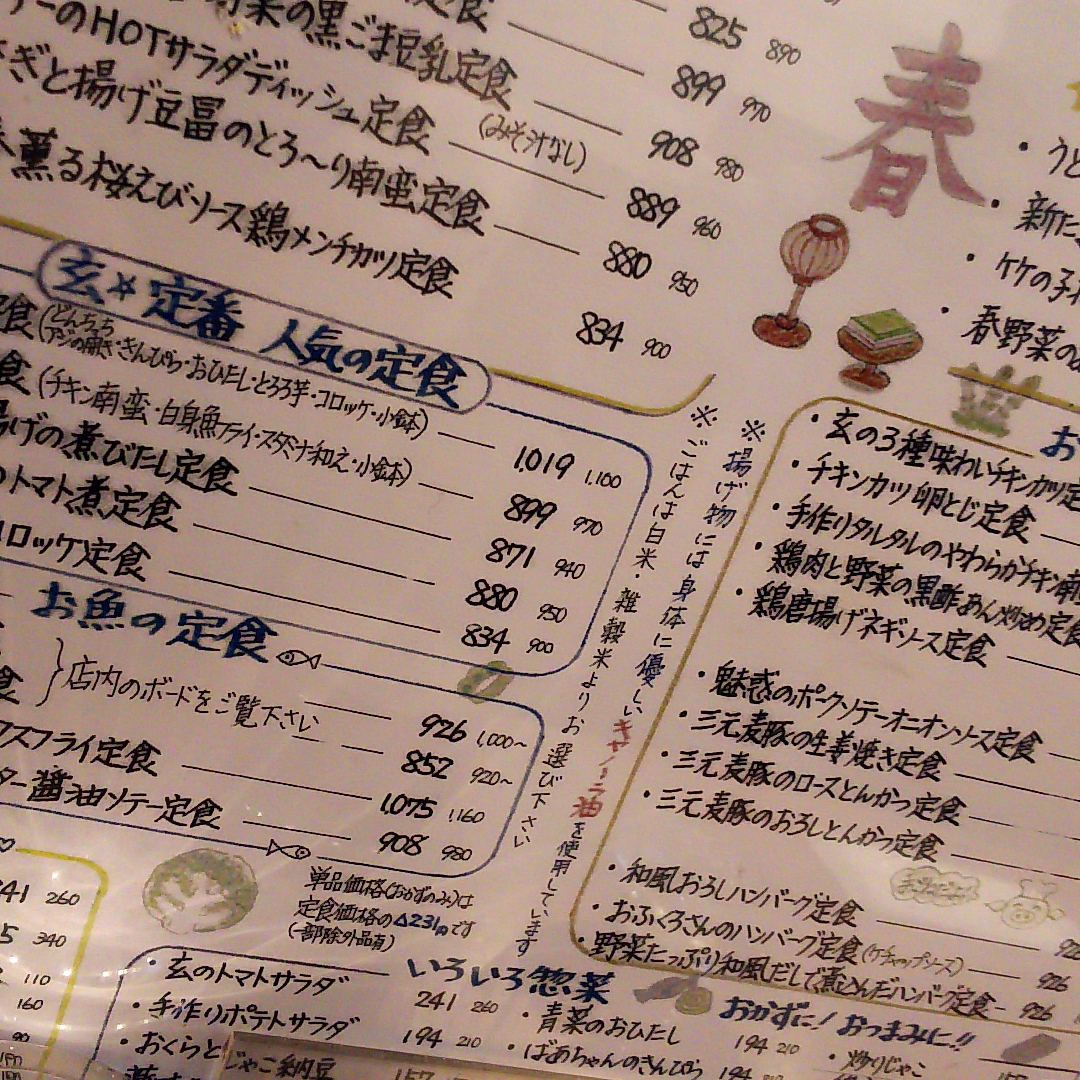 定食 825 890
野菜の黒ごま豆乳定食 899 970
ーのHOTサラダディッシュ定食 (みそ汁なし) 908 980
ぎと揚げ豆冨のとろ～り南蛮定食 889 960
880 950
薫る桜えびソース鶏メンチカツ定食 834 900
玄米定番 人気の定食
定食(どんちっち アジの開き・きんぴら・おひたし・とろろ芋・コロッケ・小鉢) 1,019 1,100
食(チキン南蛮・白身魚フライ・スタミナ和え・小鉢) 899 970
揚げの煮びたし定食 871 940
トマト煮定食 880 950
コロッケ定食 834 900
お魚の定食
店内のボードをご覧下さい 926 1,000～
食 852 920～
スフライ定食 1,075 1,160
ター醤油ソテー定食 908 980
単品価格(おかずのみ)は
定食価格の△231円です
(一部除外品有)
241 260
5 340
110
160
90
※ごはんは白米・雑穀米よりお選び下さい
※揚げ物には身体に優しいキャノーラ油を使用しています
春
・うど
・新た
・竹の子
・春野菜の
お
・玄の3種味わいチキンカツ定
・チキンカツ卵とじ定食
・手作りタルタルのやわらかチキン南
・鶏肉と野菜の黒酢あん炒め定食
・鶏唐揚げネギソース定食
・魅惑のポークソテーオニオンソース定食
・三元麦豚の生姜焼き定食
・三元麦豚のロースとんかつ定食
・三元麦豚のおろしとんかつ定食
・和風おろしハンバーグ定食
・おふくろさんのハンバーグ定食(ケチャップソース) 926
・野菜たっぷり和風だしで煮込んだハンバーグ定食 926
いろいろ惣菜
おかずに!おつまみに!!
・玄のトマトサラダ 241 260
・手作りポテトサラダ 194 210
・おくらとじゃこ納豆 157
・青菜のおひたし 194 210
・ばあちゃんのきんぴら 194 210
・炒りじゃこ